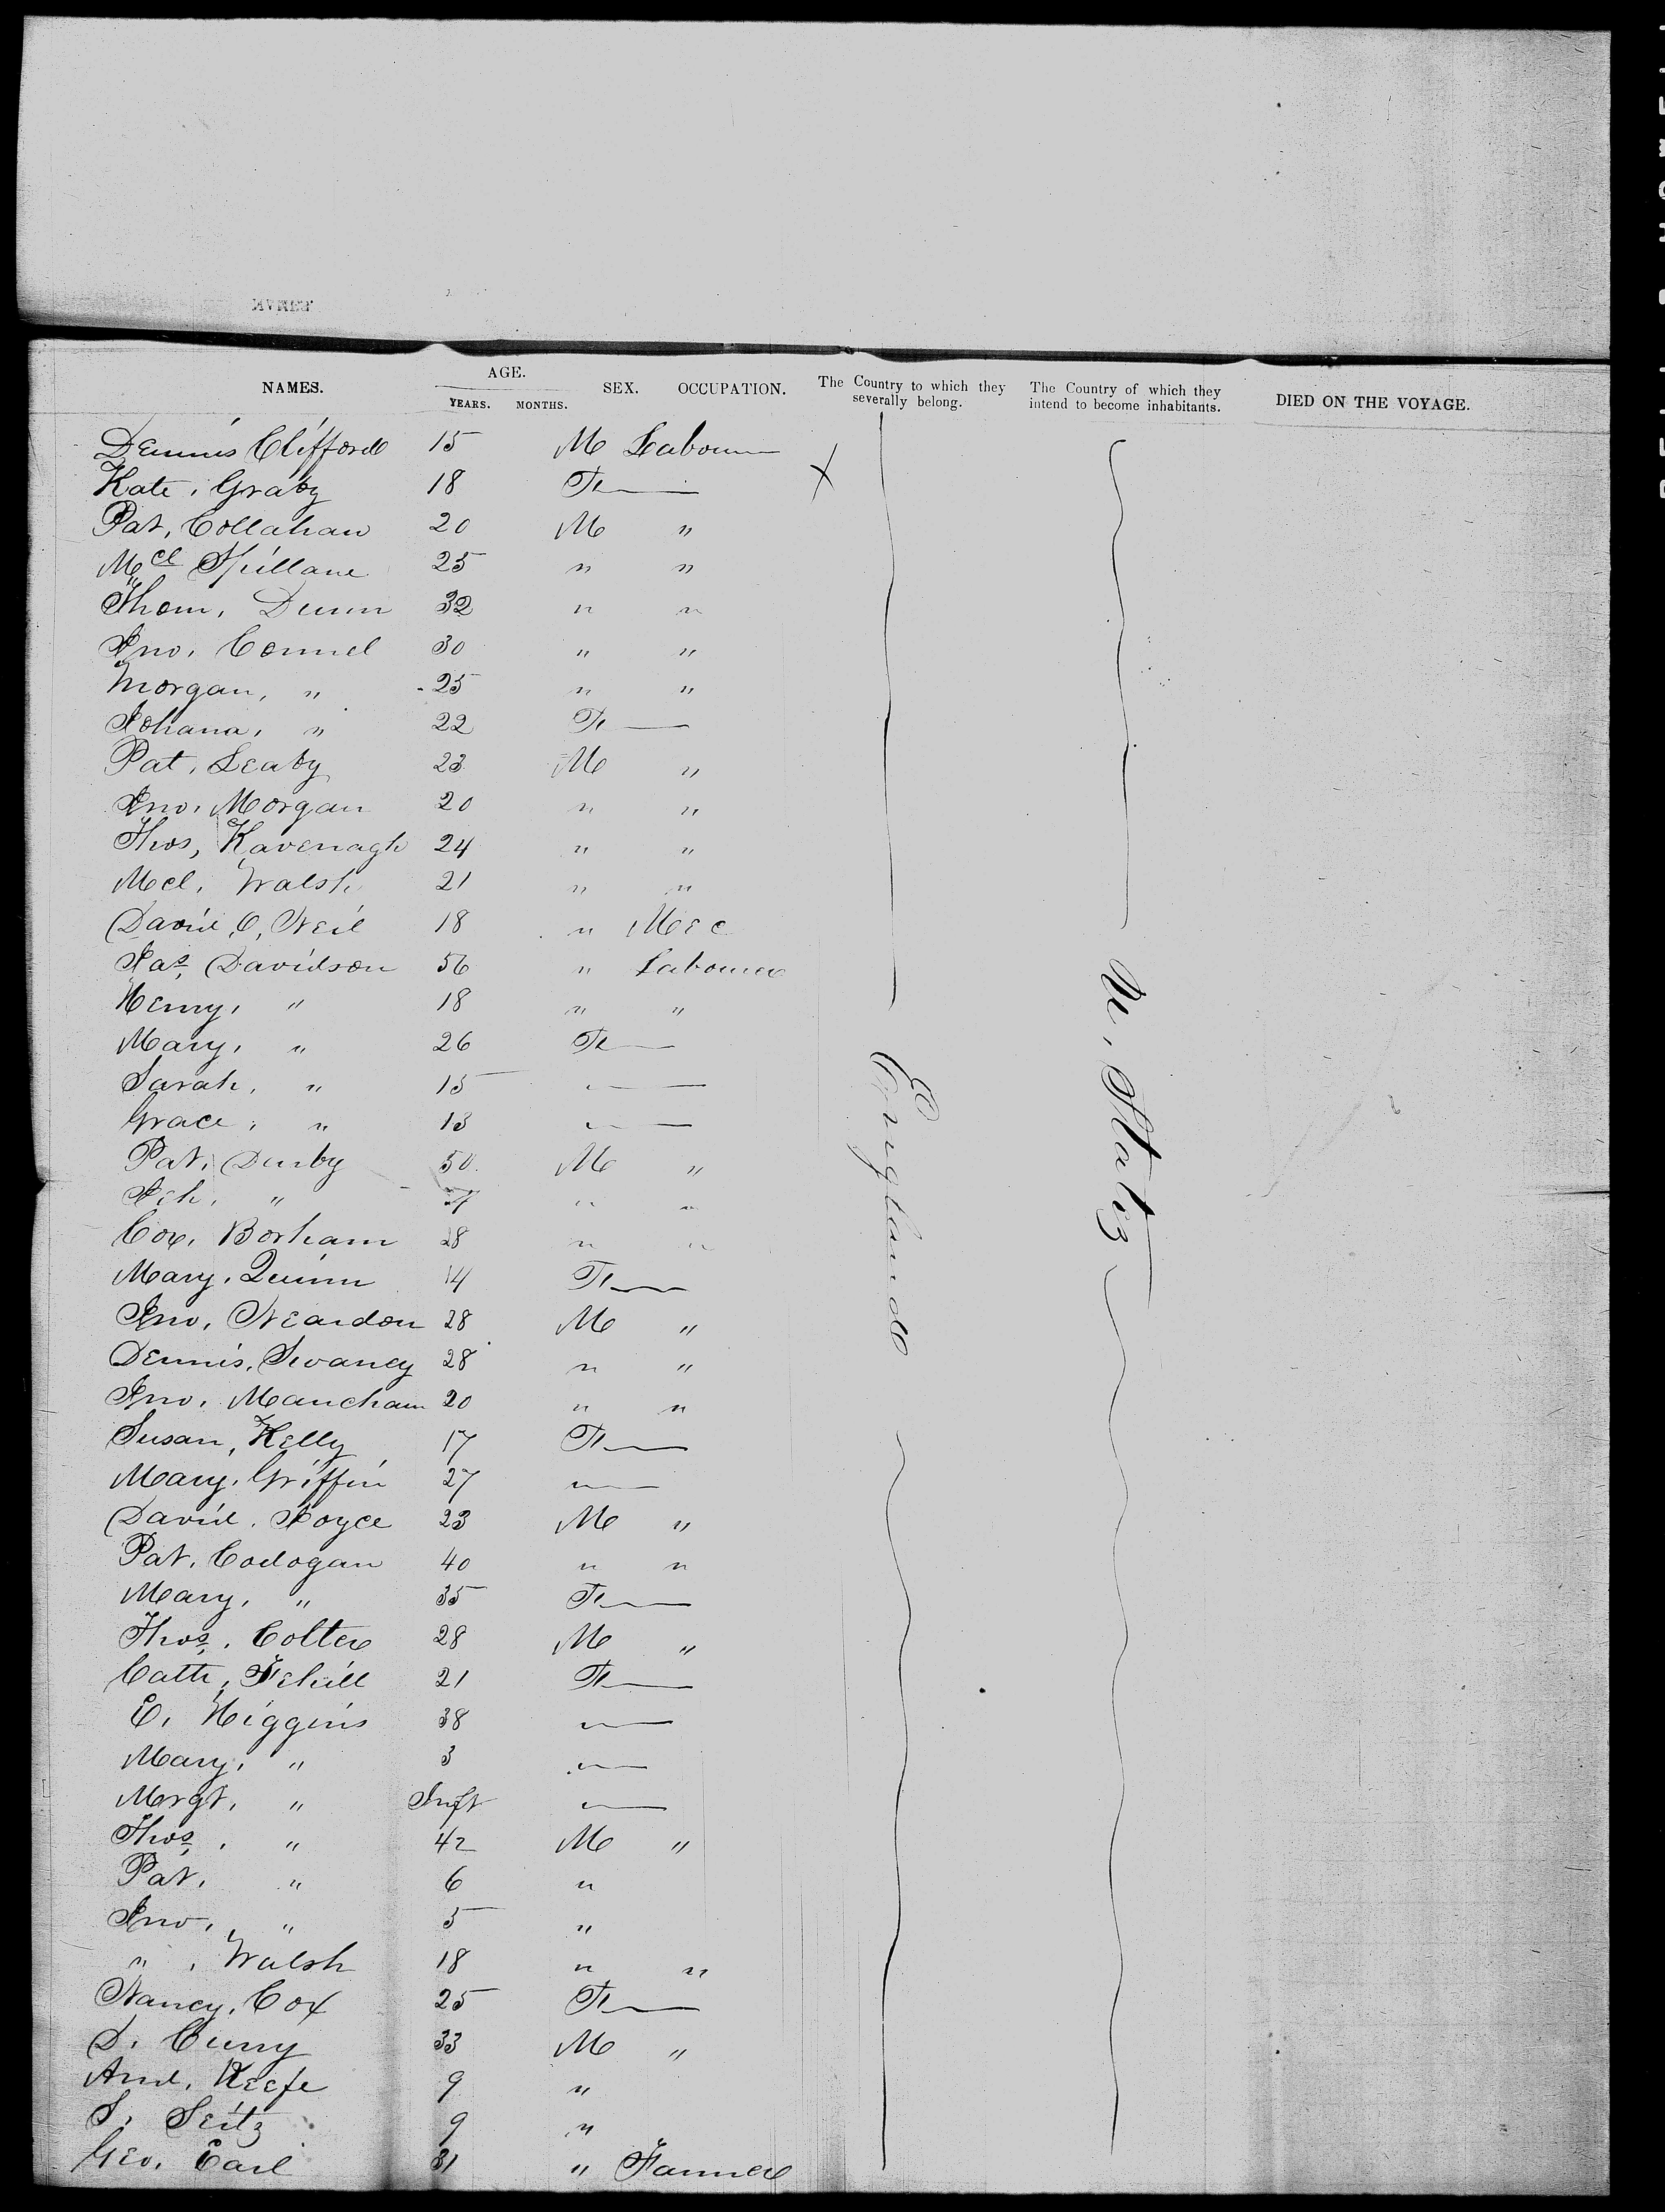 NAMES. AGE. YEARS. MONTHS. SEX. OCCUPATION. The Country to which they severally belong. The Country of which they intend to become inhabitants. DIED ON THE VOYAGE.
Dennis Clifford 15 M Labourer
Kate, Grady 18 Fe —
Pat, Collahan 20 M "
Mcl Spillane 25 " "
Thom, Dunn 32 " "
Jno, Connel 30 " "
Morgan, " 25 " "
Johana, " 22 Fe —
Pat, Leahy 23 M "
Jno, Morgan 20 " "
Thos, Kavenagh 24 " "
Mcl, Walsh 21 " "
David, O, Neil 18 " Mec
Jas, Davidson 56 " Labourer
Henry, " 18 " "
Mary, " 26 Fe —
Sarah, " 15 " —
Grace, " 13 " —
Pat, Durby 50 M "
" " "
Borham 28 " "
Mary, Quinn 14 Fe —
Jno, Neardon 28 M "
Dennis, Swaney 28 " "
Jno, Mancham 20 " "
Susan, Kelly 17 Fe —
Mary, Griffin 27 " —
David, Joyce 23 M "
Pat, Codogan 40 " "
Mary, " 35 Fe —
Thos, Colter 28 M "
Cath, Fehill 21 Fe —
E, Higgins 38 " —
Mary, " 3 " —
Mrgt, " Inft " —
Thos, " 42 M "
Pat, " 6 "
Jno, " 5 "
" , Walsh 18 " "
Nancy, Cox 25 Fe —
D, Curry 33 M "
And, Keefe 9 "
S, Seitz 9 "
Geo, Earl 31 " Farmer
England
U, States